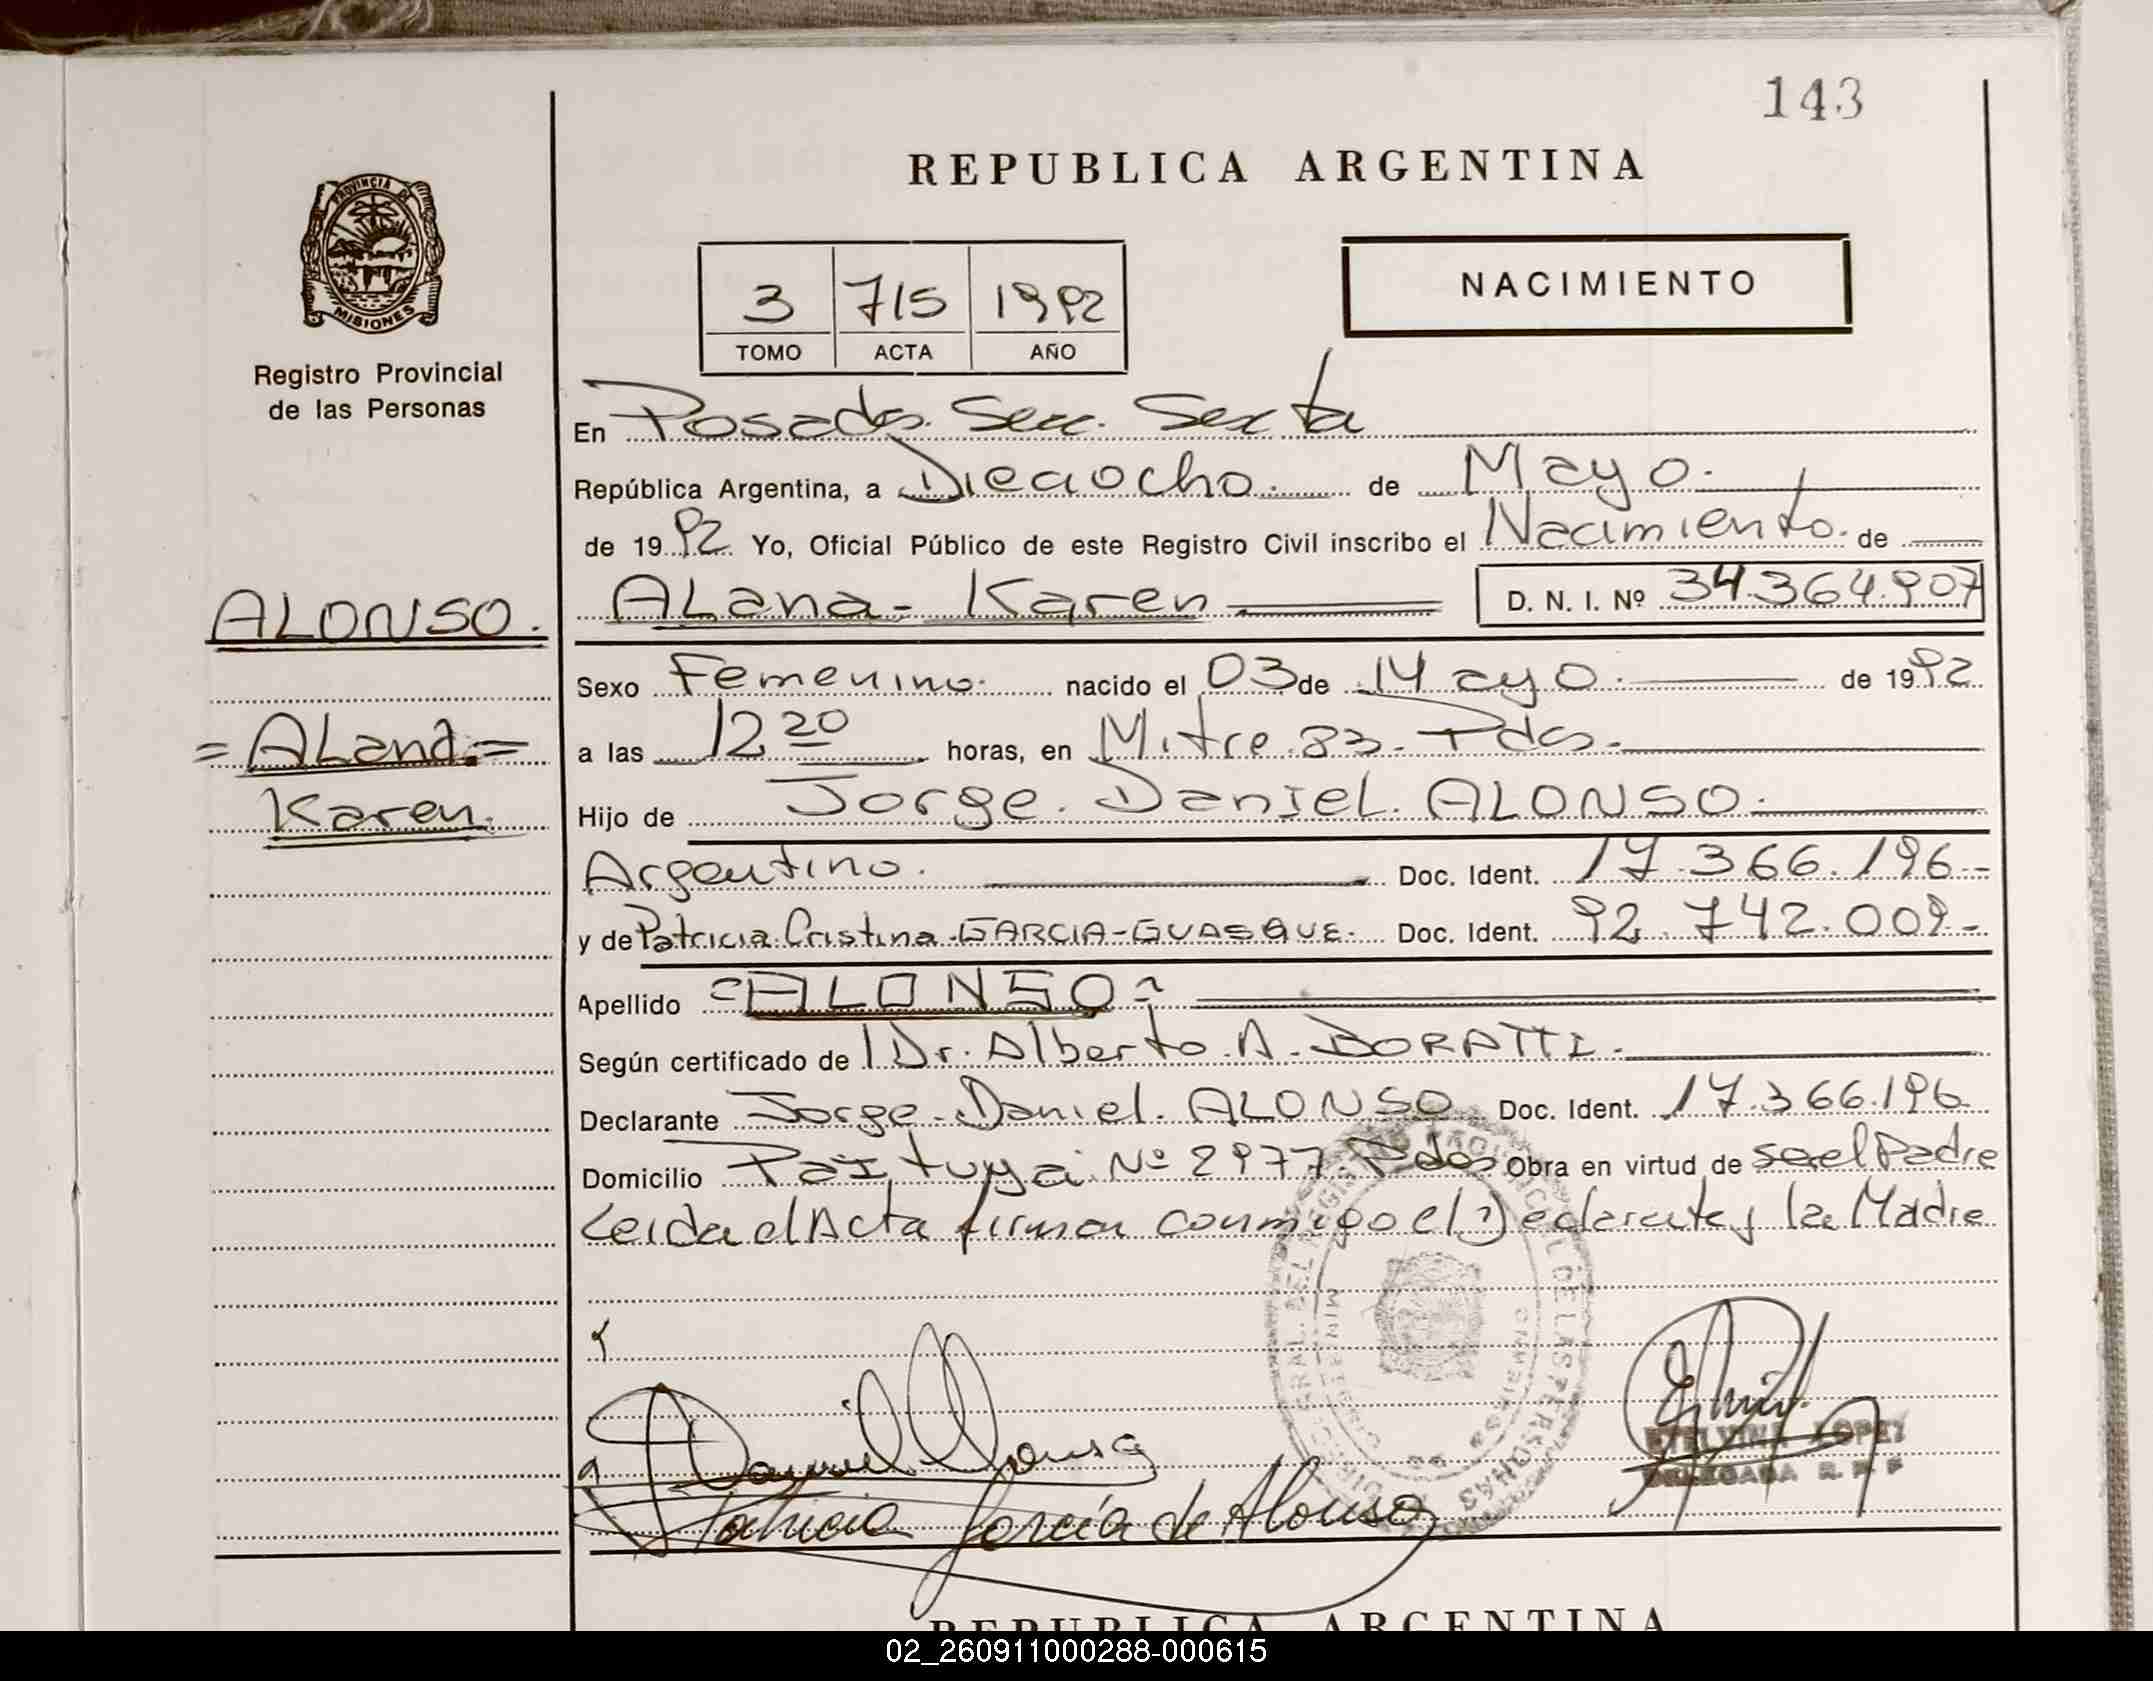 143
REPUBLICA ARGENTINA
PROVINCIA DE
MISIONES
Registro Provincial
de las Personas
3 715 1992
TOMO ACTA AÑO
NACIMIENTO
En Posadas. Secc. Sexta
República Argentina, a Dieciocho. de Mayo.
de 1992. Yo, Oficial Público de este Registro Civil inscribo el Nacimiento. de
ALONSO.
ALana- Karen D. N. I. Nº 34.364.907
Sexo Femenino. nacido el 03 de Mayo. de 1992.
= ALana. =
a las 12 20 horas, en Mitre 83. Pdas.
Karen.
Hijo de Jorge. Daniel. ALONSO.
Argentino. Doc. Ident. 17.366.196-
y de Patricia. Cristina-GARCIA-GUASQUE. Doc. Ident. 92.742.009-
Apellido =ALONSO=
Según certificado de Dr. Alberto. A. BORATTI.
Declarante Jorge-Daniel. ALONSO Doc. Ident. 17.366.196
Domicilio Nº 2977. Pdas Obra en virtud de el Padre
Leida el Acta firman conmigo el Declarante y la Madre
Daniel Alonso
Patricia García de Alonso
ETELVINA LOPEZ
DELEGADA R. P. P
REPUBLICA ARGENTINA
02_260911000288-000615